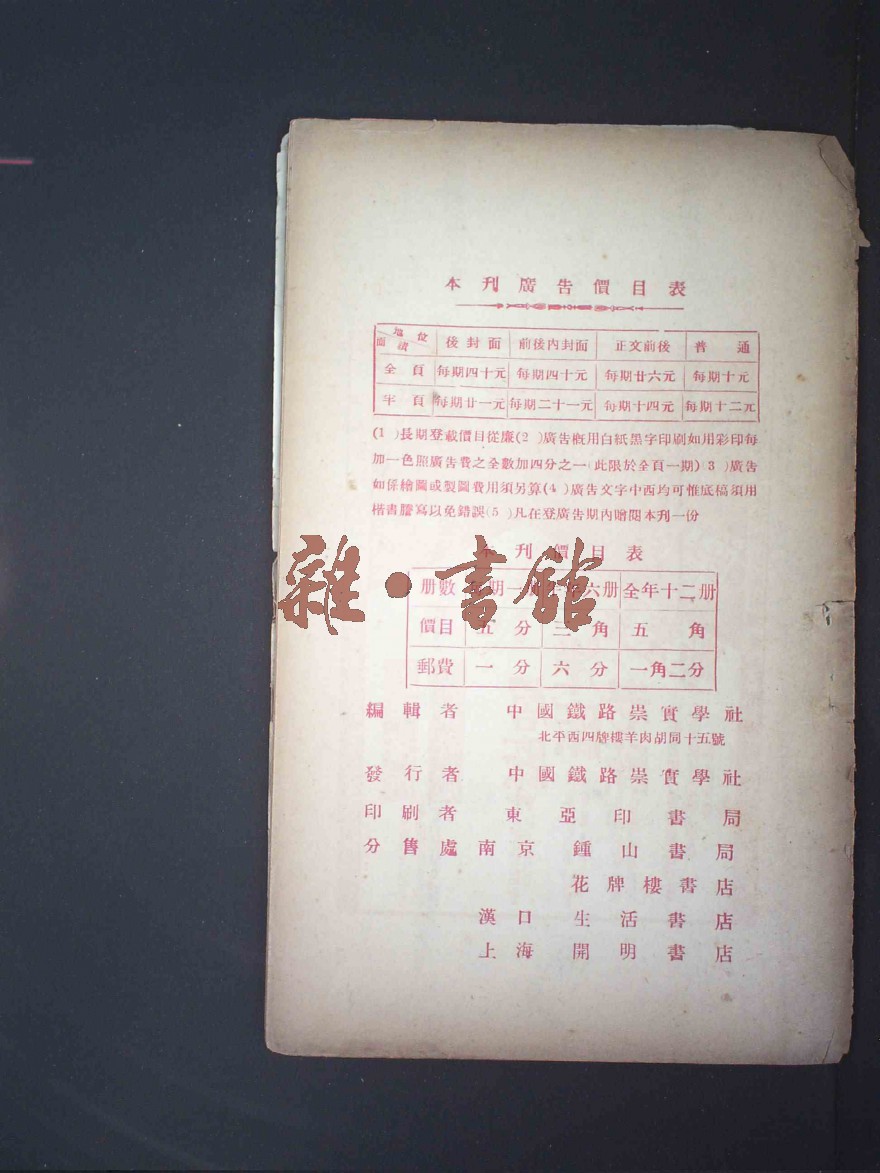 本刊廣告價目表
地位 面積 後封面 前後內封面 正文前後 普通
全頁 每期四十元 每期四十元 每期廿六元 每期十元
半頁 每期廿一元 每期二十一元 每期十四元 每期十二元
(1)長期登載價目從廉(2)廣告概用白紙黑字印刷如用彩印每
加一色照廣告費之全數加四分之一(此限於全頁一期)(3)廣告
如係繪圖或製圖費用須另算(4)廣告文字中西均可惟底稿須用
楷書謄寫以免錯誤(5)凡在登廣告期內贈閱本刊一份
本刊價目表
册數 期一 六册 全年十二册
價目 五分 三角 五角
郵費 一分 六分 一角二分
雜·書館
編輯者 中國鐵路崇實學社
北平西四牌樓羊肉胡同十五號
發行者 中國鐵路崇實學社
印刷者 東亞印書局
分售處 南京 鍾山書局
花牌樓書店
漢口 生活書店
上海 開明書店